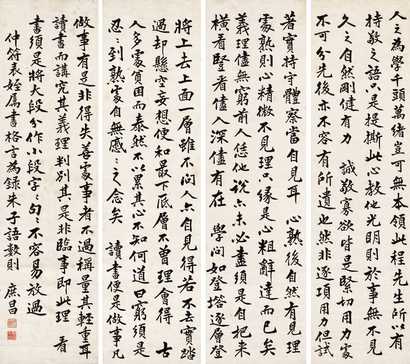 人之為學千頭萬緒豈可無本領此程先生所以有
持敬之語只是提撕此心教他光明則於事無不見
久之自然剛健有力　誠敬寡欲時是緊切用力處
不可分先後亦不容有所遺也然非逐項用力但試
著實持守體察當自見耳　心熟後自然有見理
處熟則心精微不見理只緣是心粗辭達而已矣
義理儘無窮前人恁地說亦未必盡須是自把來
橫看豎看儘入深儘有在　學問如登塔逐層登
將上去上面一層雖不問人亦自見得若不去實踏
過却懸空妄想便和最下底層不曾理會得　古
人多處貧困而泰然不以累其心不知何道曰窮須是
忍〻到熟處自無戚〻之念矣　讀書便是做事凡
做事有是非得失善處事者不過稱量其輕重耳
讀書而講究其義理判別其是非臨事即此理　看
書須是將大段分作小段字〻句〻不容易放過
仲符表姪屬書格言為錄朱子語數則　庶昌